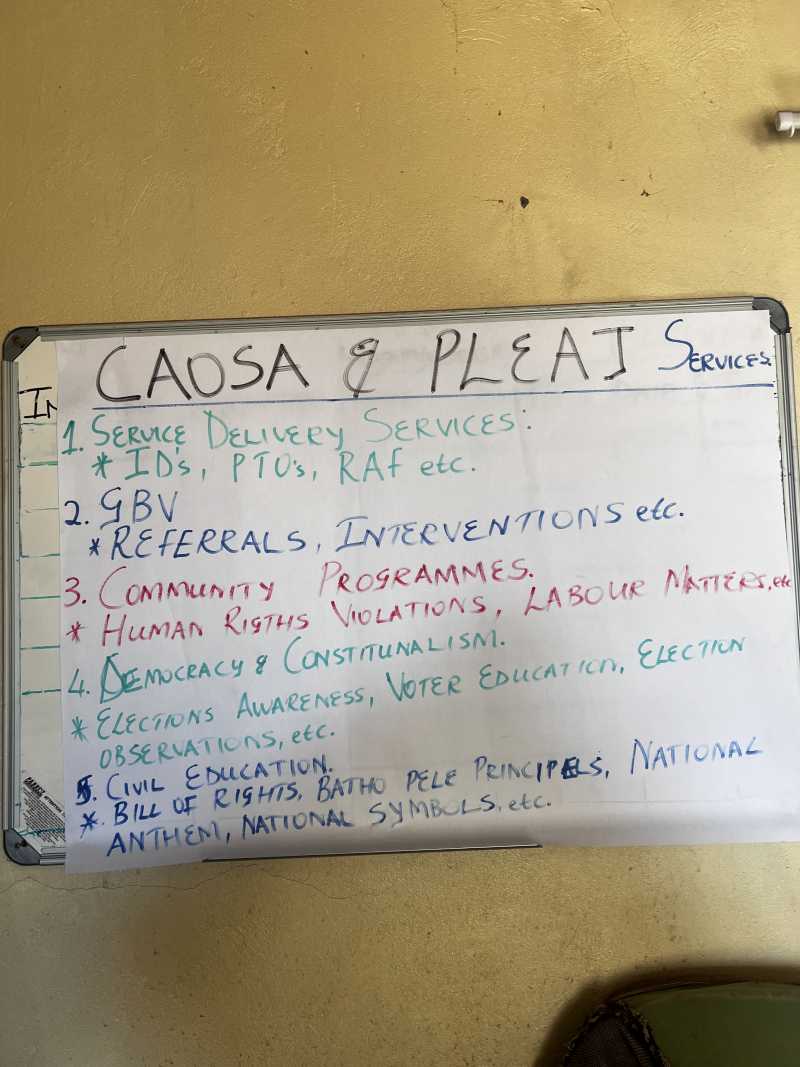 CAOSA & PLEAJ SERVICES.
IN
1. SERVICE DELIVERY SERVICES:
* ID's, PTO's, RAf etc.
2. GBV
* REFERRALS, INTERVENTIONS etc.
3. COMMUNITY PROGRAMMES.
* HUMAN RIGTHS VIOLATIONS, LABOUR MATTERS, etc
4. DEMOCRACY & CONSTITUNALISM.
* ELECTIONS AWARENESS, VOTER EDUCATION, ELECTION
OBSERVATIONS, etc.
5. CIVIL EDUCATION.
* BILL OF RIGHTS, BATHO PELE PRINCIPELS, NATIONAL
ANTHEM, NATIONAL SYMBOLS, etc.